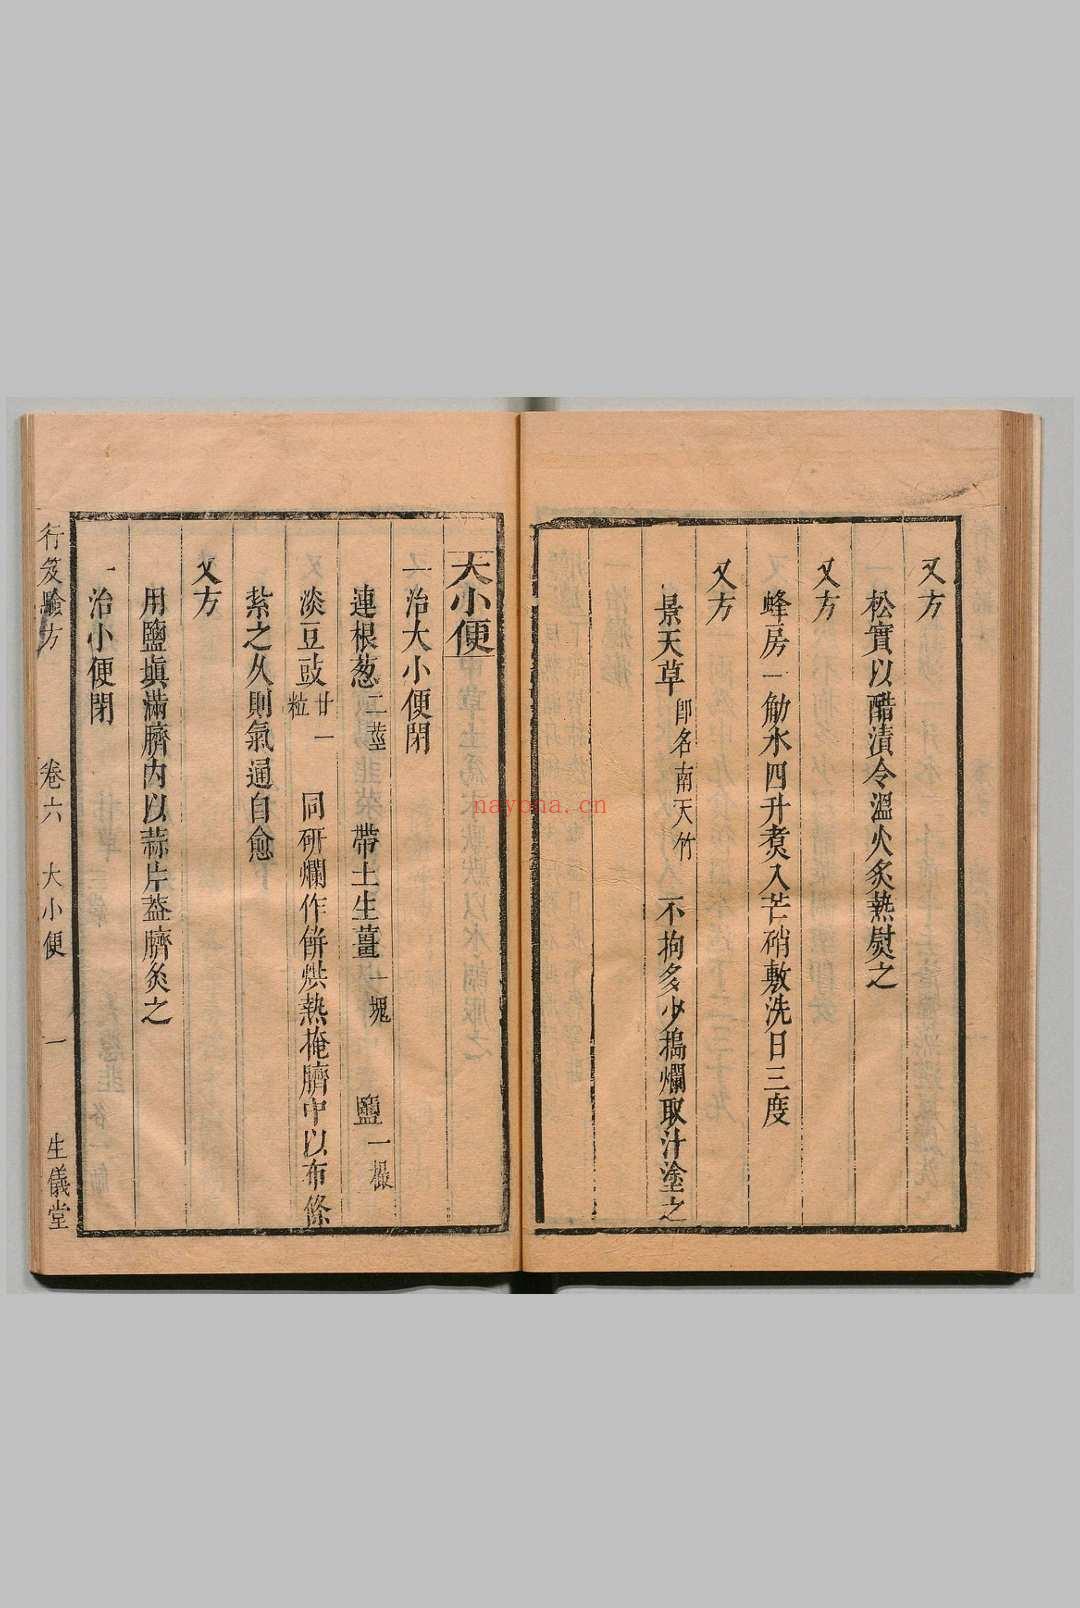 又方
松實以醋漬令溫火炙熱熨之
又方
蜂房一觔水四升煮入芒硝敷洗日三度
又方
景天草卽名南天竹不拘多少搗爛取汁塗之
大小便
一治大小便閉
連根葱二莖 帶土生薑一塊 鹽一撮
淡豆豉廿一粒 同研爛作餅烘熱掩臍中以布條
紮之久則氣通自愈
又方
用鹽塡滿臍內以蒜片葢臍灸之
一治小便閉
行笈驗方 卷六 大小便 一 生儀堂
nayona.cn